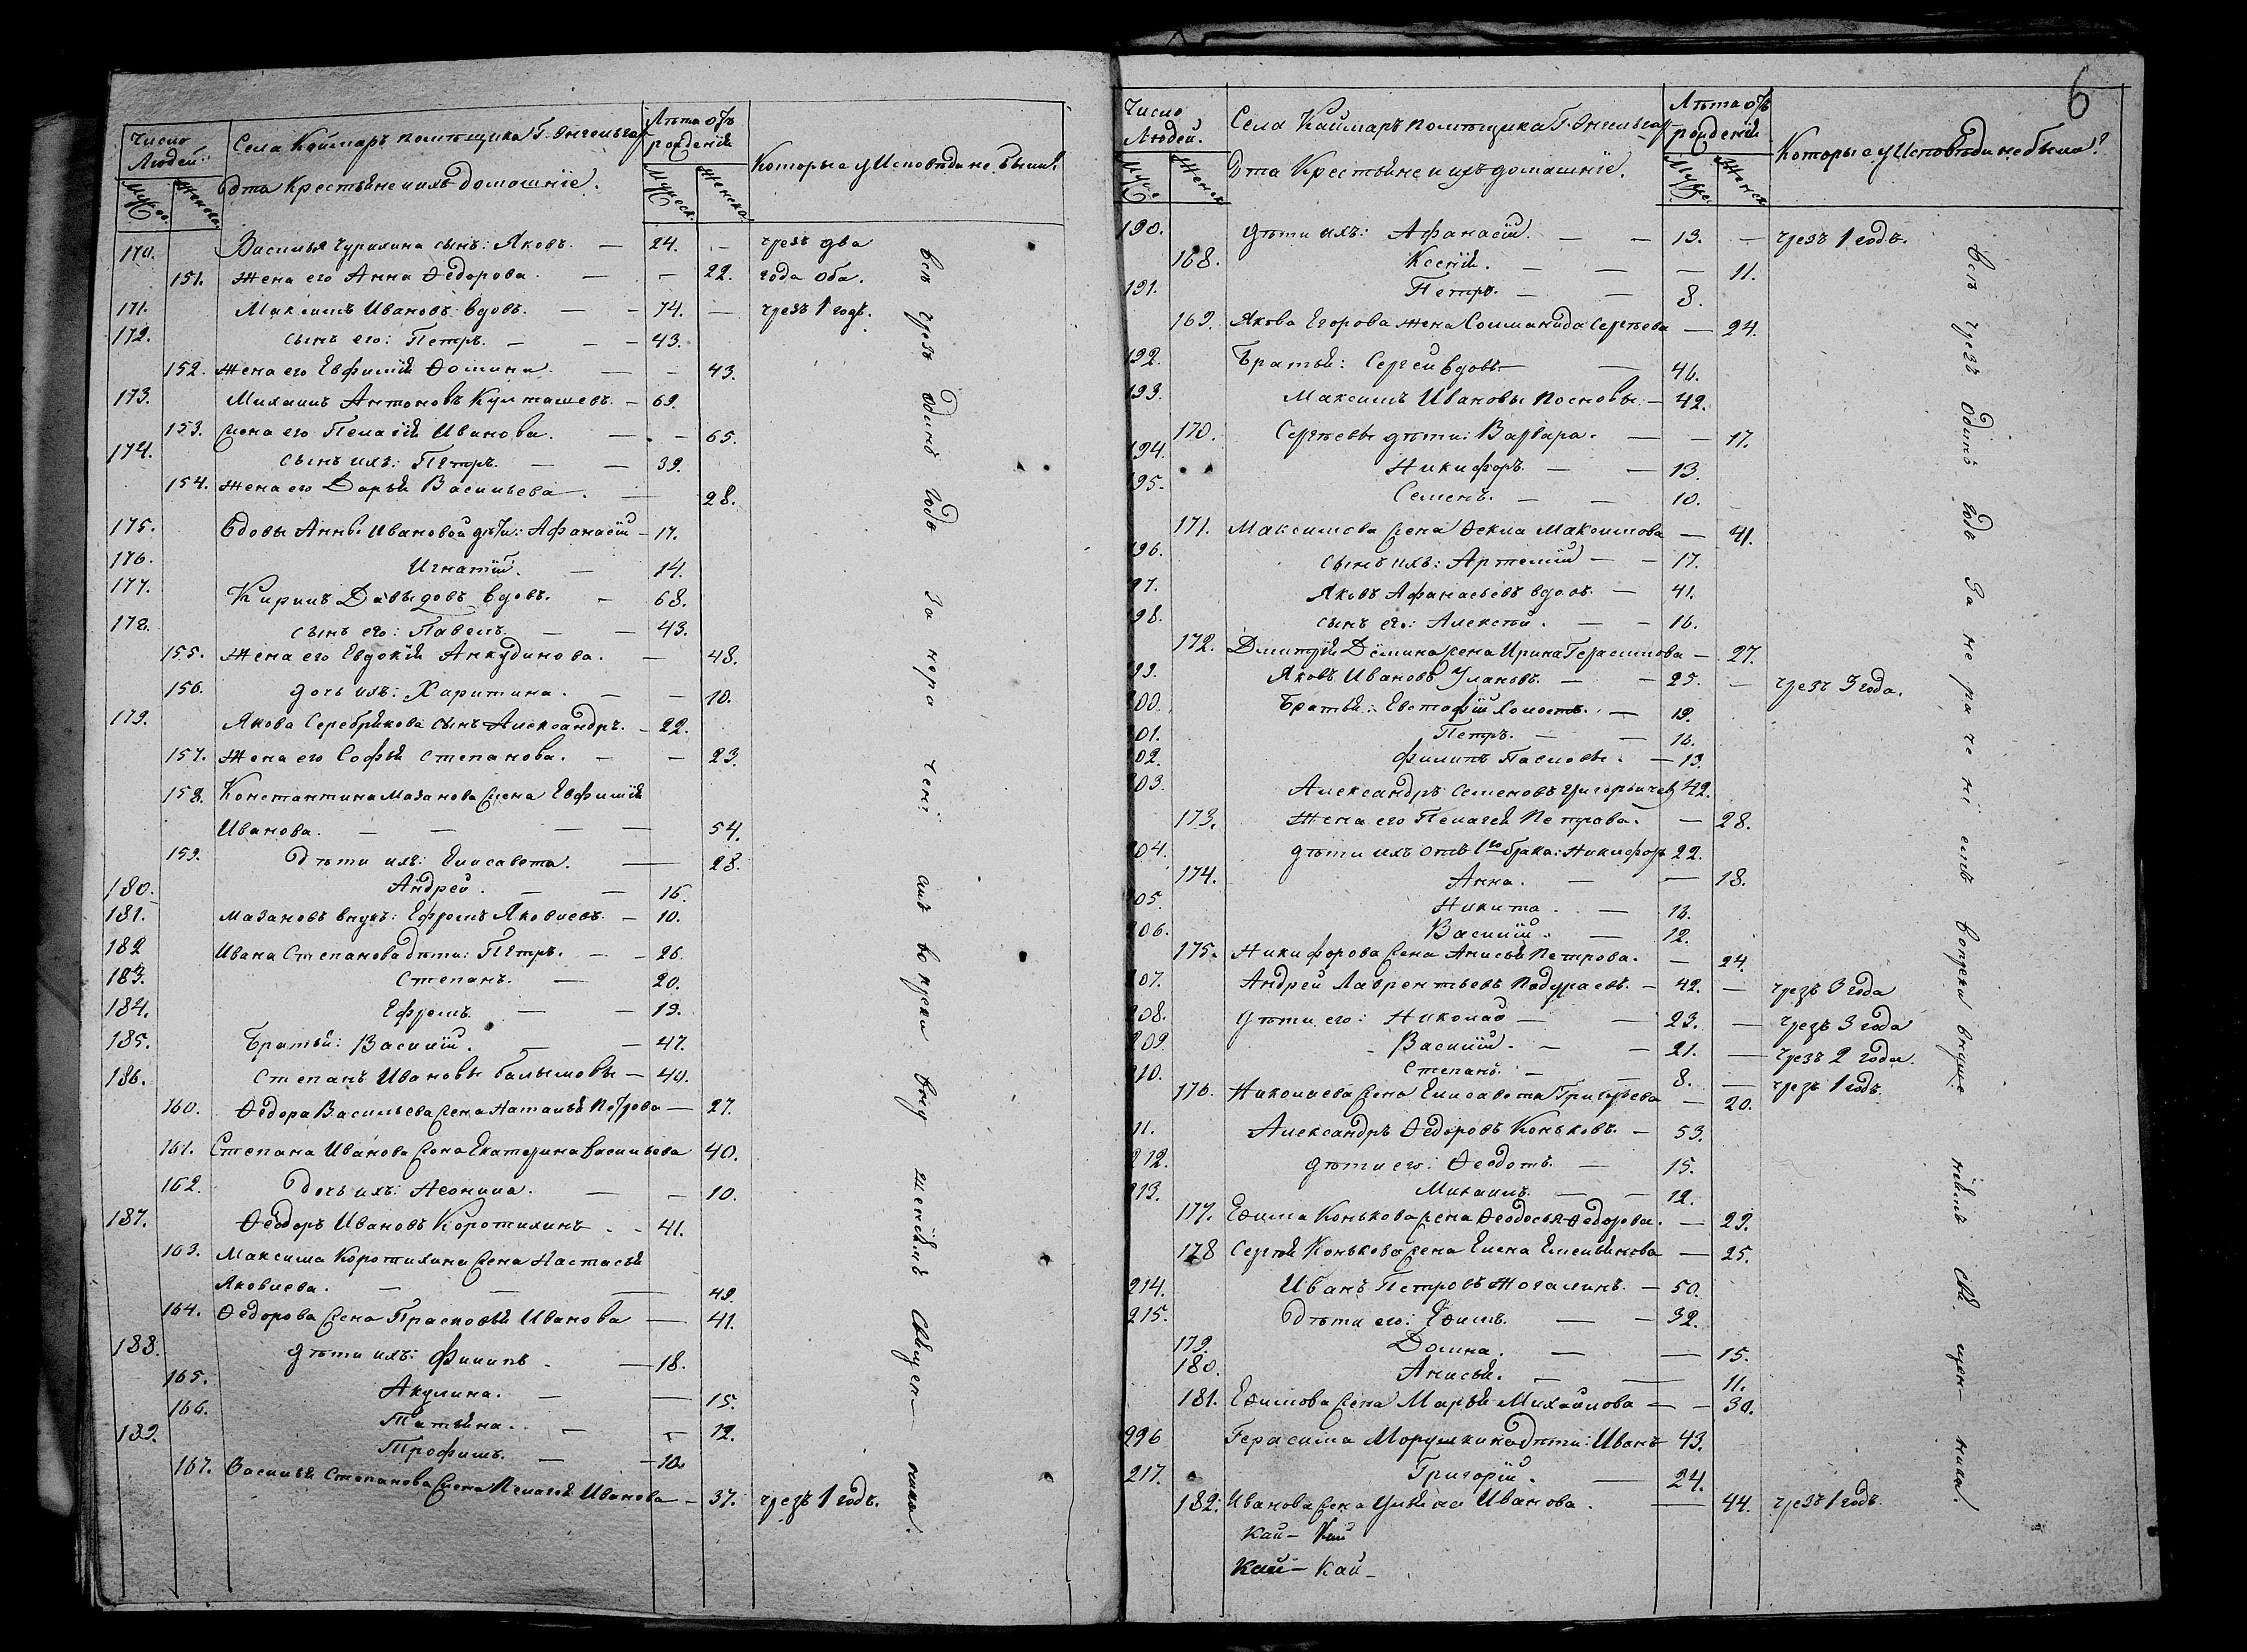 Число Людей.
Села Каймаръ помѣщика Г. Энгельгар
дта Крестьяне и ихъ домашніе.
Лѣта отъ рожденія
Которые у Исповѣди не были.
Мужес. Женска.
Мужеск. Женска.
170. Василья Чуралина сынъ: Яковъ. — 24. — чрезъ два
151. Жена его Анна Ѳедорова. — — 22. года оба.
171. Максимъ Ивановъ вдовъ. — 74. — чрезъ 1 годъ.
172. сынъ его: Петръ. — — 43.
152. Жена его Евфимія Ѳомина. — — 43.
173. Михаилъ Антоновъ — 69.
153. Жена его Пелагія Иванова. — — 65.
174. сынъ ихъ: Петръ. — — 39.
154. Жена его Дарья Васильева. — 28.
175. Вдовы Анны Ивановой дѣти: Афанасій — 17.
176. Игнатій. — 14.
177. Кирилъ Давыдовъ вдовъ. — 68.
178. сынъ его: Павелъ. — — 43.
155. Жена его Евдокія Анкудинова. — 48.
156. дочь ихъ: Харитина. — — 10.
179. Якова Серебрякова сынъ Александръ. — 22.
157. Жена его Софья Степанова. — — 23.
158. Константина Мазанова жена Евфимія
Иванова. — — — — 54.
159. Дѣти ихъ: Елисавета. — 28.
180. Андрей. — — 16.
181. Мазановъ внукъ: Ефремъ Яковлевъ. — 10.
182 Ивана Степанова дѣти: Петръ. — — 26.
183. Степанъ. — 20.
184. Ефремъ. — — 19.
185. Братья: Василій. — — 47.
186. Степанъ Ивановы — 40.
160. Ѳедора Васильева жена Наталья Петрова — 27.
161. Степана Иванова жена Екатерина Васильева 40.
162. Дочь ихъ: Неонила. — — 10.
187. Ѳедоръ Ивановъ Коротихинъ — 41.
163. Максима Коротихина жена Настасья
Яковлева. — — — 49.
164. Ѳедорова жена Прасковья Иванова — 41.
188. дѣти ихъ: Филипъ. — 18.
165. Акулина. — — 15.
166. Татьяна. — — 12.
189. Трофимъ. — — 10.
167. Василья Степанова жена Пелагея Иванова — 37. чрезъ 1 годъ.
всѣ чрезъ одинъ годъ за нера ченіемъ вопреки внушеніямъ Священника.
6
Число Людей.
Села Каймаръ помѣщика Г. Энгельгар
дта Крестьяне и ихъ домашніе.
Лѣта отъ рожденія
Которые у Исповѣди не были?
Муже. Женск.
Муже. Женск.
190. дѣти ихъ: Афанасій. — — 13. — чрезъ 1 годъ.
168. Ксенія. — — — 11.
191. Петръ. — — 8.
169. Якова Егорова жена Соломонида Сергѣева — 24.
192. Братья: Сергей вдовъ. — — 46.
193. Максимъ Ивановы — 42.
170. Сергѣевы дѣти: Варвара. — — 17.
194. Никифоръ. — — 13.
195. Семенъ. — — 10.
171. Максимова жена Ѳекла Максимова — 41.
196. сынъ ихъ: Артемій — — 17.
97. Яковъ Афанасьевъ вдовъ. — 41.
98. сынъ его: Алексѣй. — — 16.
172. Дмитрія Дёмина жена Ирина Герасимова — 27.
99. Яковъ Ивановъ Улановъ. — — 25. — чрезъ 3 года.
00. Братья: Евстафій холостъ. — 19.
01. Петръ. — — 16.
02. Филипъ — 13.
03. Александръ Семеновъ 42.
173. Жена его Пелагея Петрова. — 28.
04. дѣти ихъ отъ 1го брака: Никифоръ 22.
174. Анна. — — 18.
05. Никита. — 16.
06. Василій. — 12.
175. Никифорова жена Анисья Петрова. — 24.
07. Андрей Лаврентьевъ — 42. — чрезъ 3 года
08. дѣти его: Николай — — 23. — чрезъ 3 года
09. Василій. — — 21. — чрезъ 2 года.
10. Степанъ. — — 8. — чрезъ 1 годъ.
176. Николаева жена Елисавета Григорьева — 20.
11. Александръ Ѳедоровъ Коньковъ. — 53.
212. дѣти его: Ѳедотъ. — 15.
213. Михаилъ. — — 12.
177. Ефима Конькова жена Ѳеодосья Ѳедорова. — 29.
178 Сергѣя Конькова жена Елена Емельянова — 25.
214. Иванъ Петровъ Жогалинъ. — 50.
215. Дѣти его: Ефимъ. — — 32.
179. Домна. — — 15.
180. Анисья. — — 11.
181. Ефимова жена Марья Михайлова — — 30.
226 Герасима Морушкина дѣти: Иванъ 43.
217. Григорій. — 24.
182. Иванова жена Иванова. — 44. чрезъ 1 годъ.
Кай — Кай
Кай — Кай —
всѣ чрезъ одинъ годъ за нераченіемъ вопреки внушеніямъ священника.